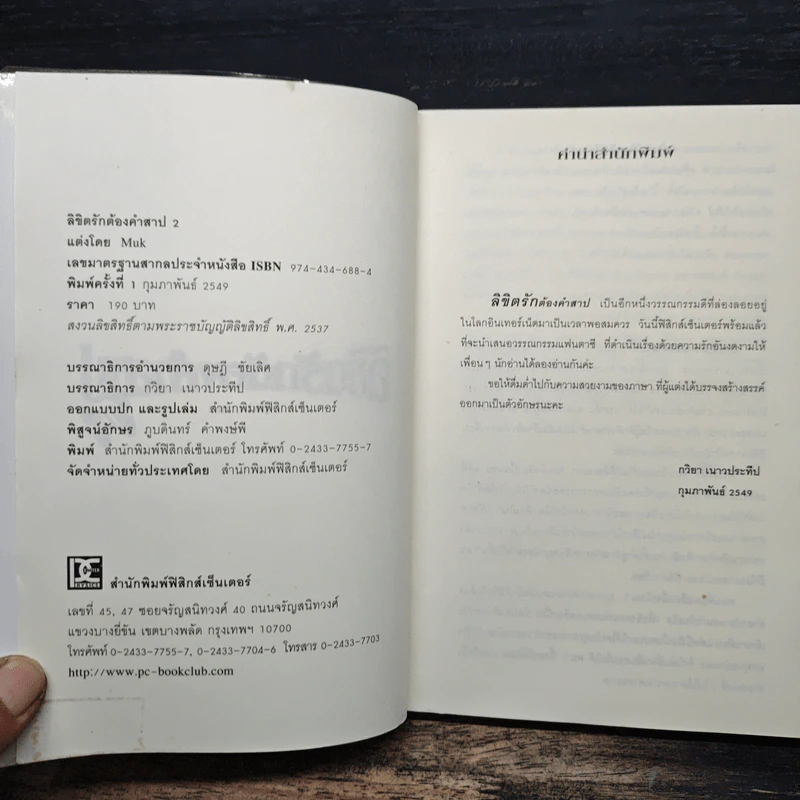 ลิขิตรักต้องคำสาป 2
แต่งโดย Muk
เลขมาตรฐานสากลประจำหนังสือ ISBN 974-434-688-4
พิมพ์ครั้งที่ 1 กุมภาพันธ์ 2549
ราคา 190 บาท
สงวนลิขสิทธิ์ตามพระราชบัญญัติลิขสิทธิ์ พ.ศ. 2537
บรรณาธิการอำนวยการ ดุษฎี ชัยเลิศ
บรรณาธิการ กวิยา เนาวประทีป
ออกแบบปก และรูปเล่ม สำนักพิมพ์ฟิสิกส์เซ็นเตอร์
พิสูจน์อักษร ภูบดินทร์ คำพงษ์พี
พิมพ์ สำนักพิมพ์ฟิสิกส์เซ็นเตอร์ โทรศัพท์ 0-2433-7755-7
จัดจำหน่ายทั่วประเทศโดย สำนักพิมพ์ฟิสิกส์เซ็นเตอร์
สำนักพิมพ์ฟิสิกส์เซ็นเตอร์
เลขที่ 45, 47 ซอยจรัญสนิทวงศ์ 40 ถนนจรัญสนิทวงศ์
แขวงบางยี่ขัน เขตบางพลัด กรุงเทพฯ 10700
โทรศัพท์ 0-2433-7755-7, 0-2433-7704-6 โทรสาร 0-2433-7703
http://www.pc-bookclub.com
คำนำสำนักพิมพ์
ลิขิตรักต้องคำสาป เป็นอีกหนึ่งวรรณกรรมดีที่ล่องลอยอยู่
ในโลกอินเทอร์เน็ตมาเป็นเวลาพอสมควร วันนี้ฟิสิกส์เซ็นเตอร์พร้อมแล้ว
ที่จะนำเสนอวรรณกรรมแฟนตาซี ที่ดำเนินเรื่องด้วยความรักอันงดงามให้
เพื่อนๆ นักอ่านได้ลองอ่านกันค่ะ
ขอให้ดื่มด่ำไปกับความสวยงามของภาษา ที่ผู้แต่งได้บรรจงสร้างสรรค์
ออกมาเป็นตัวอักษรนะคะ
กวิยา เนาวประทีป
กุมภาพันธ์ 2549